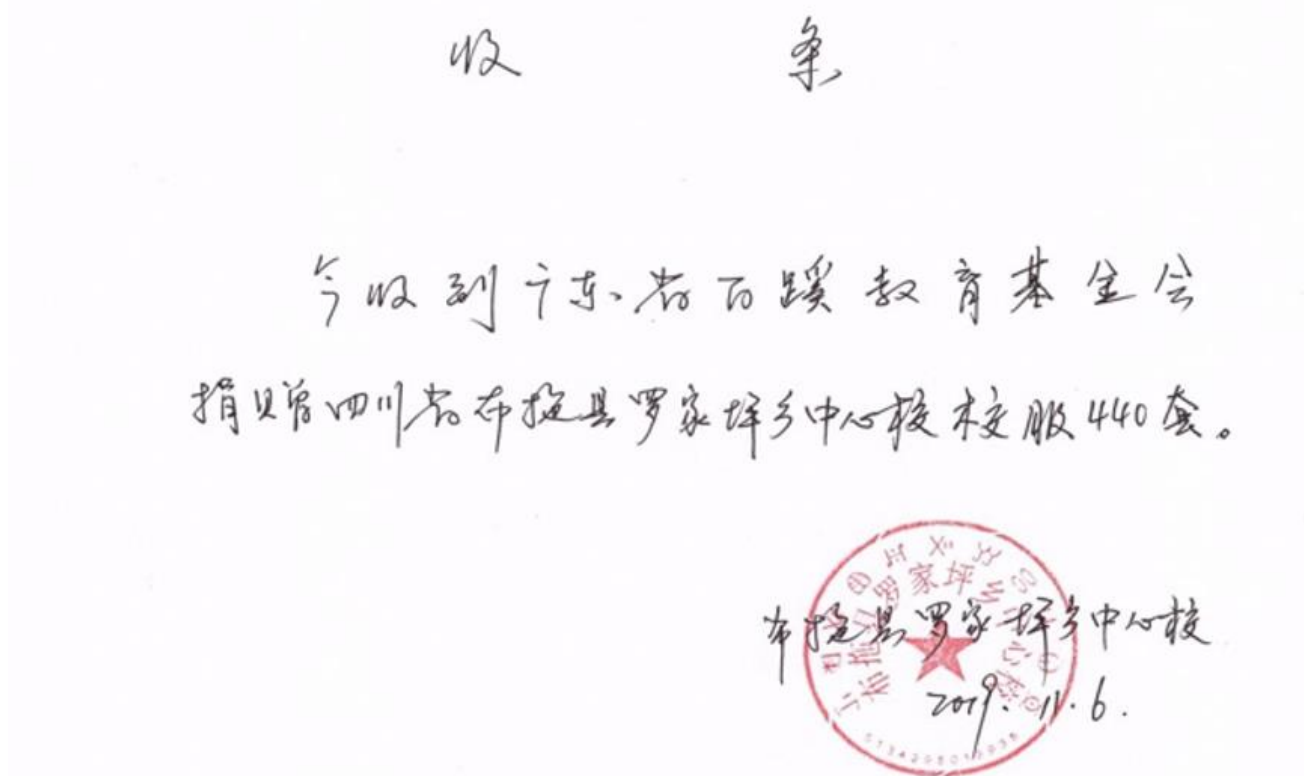 收 条
今收到广东省百蹊教育基金会
捐赠四川省布拖县罗家坪乡中心校校服440套。
布拖县罗家坪乡中心校
布拖县罗家坪乡中心校
2019.11.6.